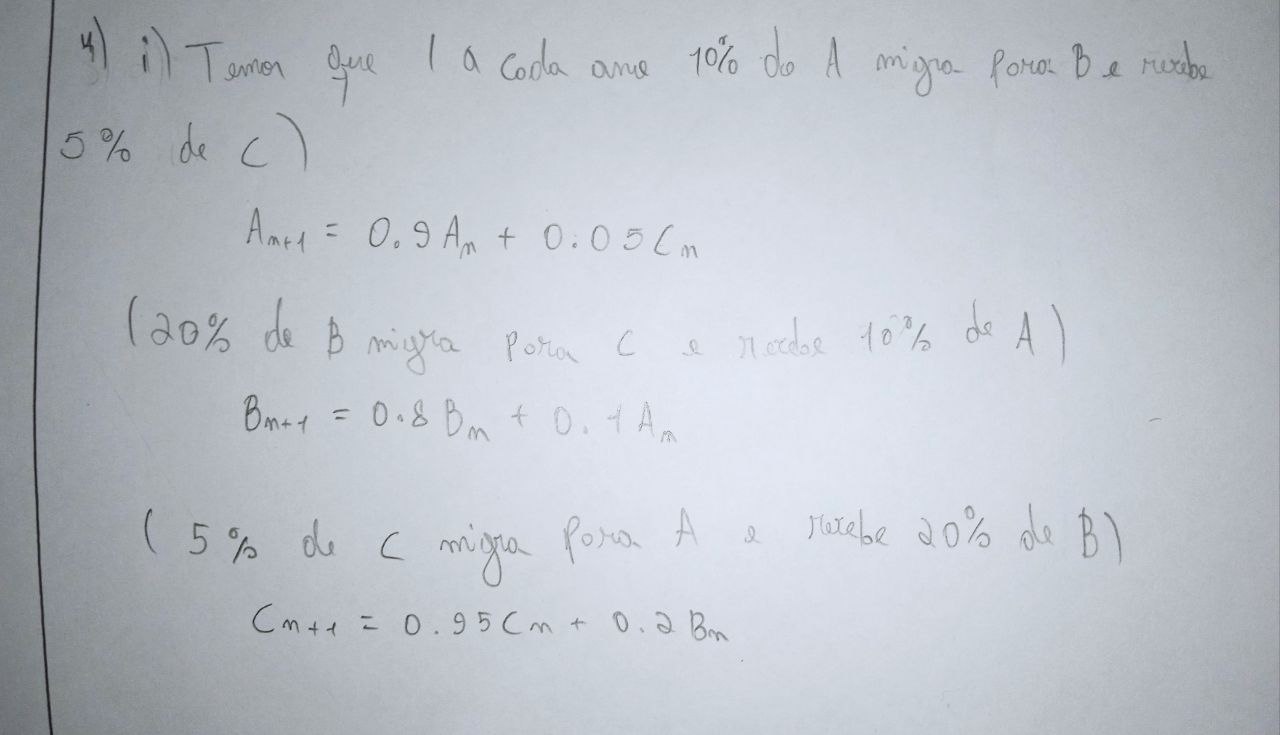 4) i) Temos que ( a cada ano 10% do A migra para B e recebe
5% de C)
An+1 = 0.9 An + 0.05 Cn
(20% de B migra para C e recebe 10% de A)
Bn+1 = 0.8 Bn + 0.1 An
(5% de C migra para A e recebe 20% de B)
Cn+1 = 0.95 Cn + 0.2 Bn